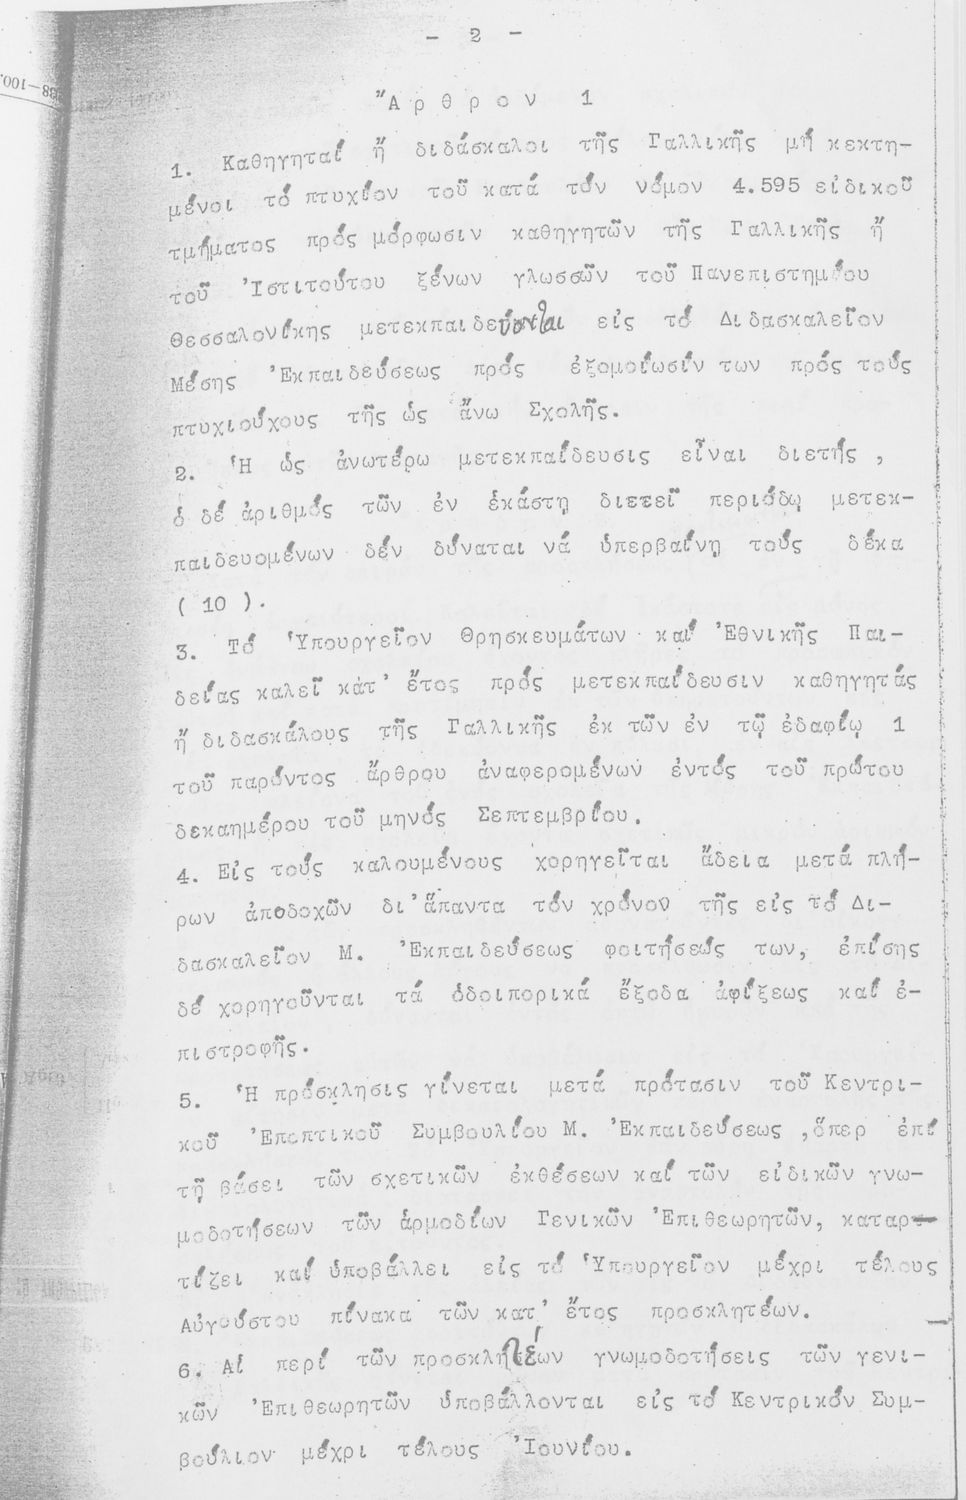 - 2 -
Ἄρθρον 1
1. Καθηγηταί ἤ διδάσκαλοι τῆς Γαλλικῆς μή κεκτη-
μένοι τό πτυχίον τοῦ κατά τόν νόμον 4.595 εἰδικοῦ
τμήματος πρός μόρφωσιν καθηγητῶν τῆς Γαλλικῆς ἤ
τοῦ Ἰστιτούτου ξένων γλωσσῶν τοῦ Πανεπιστημίου
Θεσσαλονίκης μετεκπαιδεύονται εἰς τό Διδασκαλεῖον
Μέσης Ἐκπαιδεύσεως πρός ἐξομοίωσίν των πρός τούς
πτυχιούχους τῆς ὡς ἄνω Σχολῆς.
2. Ἡ ὡς ἀνωτέρω μετεκπαίδευσις εἶναι διετής ,
ὁ δέ ἀριθμός τῶν ἐν ἑκάστη διετεῖ περιόδῳ μετεκ-
παιδευομένων δέν δύναται νά ὑπερβαίνη τούς δέκα
( 10 ).
3. Τό Ὑπουργεῖον Θρησκευμάτων καί Ἐθνικῆς Παι-
δείας καλεῖ κάτ' ἔτος πρός μετεκπαίδευσιν καθηγητάς
ἤ διδασκάλους τῆς Γαλλικῆς ἐκ τῶν ἐν τῷ ἐδαφίῳ 1
τοῦ παρόντος ἄρθρου ἀναφερομένων ἐντός τοῦ πρώτου
δεκαημέρου τοῦ μηνός Σεπτεμβρίου.
4. Εἰς τούς καλουμένους χορηγεῖται ἄδεια μετά πλή-
ρων ἀποδοχῶν δι' ἅπαντα τόν χρόνον τῆς εἰς τό Δι-
δασκαλεῖον Μ. Ἐκπαιδεύσεως φοιτήσεώς των, ἐπίσης
δέ χορηγοῦνται τά ὁδοιπορικά ἔξοδα ἀφίξεως καί ἐ-
πιστροφῆς.
5. Ἡ πρόσκλησις γίνεται μετά πρότασιν τοῦ Κεντρι-
κοῦ Ἐποπτικοῦ Συμβουλίου Μ. Ἐκπαιδεύσεως ,ὅπερ ἐπί
τῇ βάσει τῶν σχετικῶν ἐκθέσεων καί τῶν εἰδικῶν γνω-
μοδοτήσεων τῶν ἁρμοδίων Γενικῶν Ἐπιθεωρητῶν, καταρ-
τίζει καί ὑποβάλλει εἰς τό Ὑπουργεῖον μέχρι τέλους
Αὐγούστου πίνακα τῶν κατ' ἔτος προσκλητέων.
6. Αἱ περί τῶν προσκλητέων γνωμοδοτήσεις τῶν γενι-
κῶν Ἐπιθεωρητῶν ὑποβάλλονται εἰς τό Κεντρικόν Συμ-
βούλιον μέχρι τέλους Ἰουνίου.